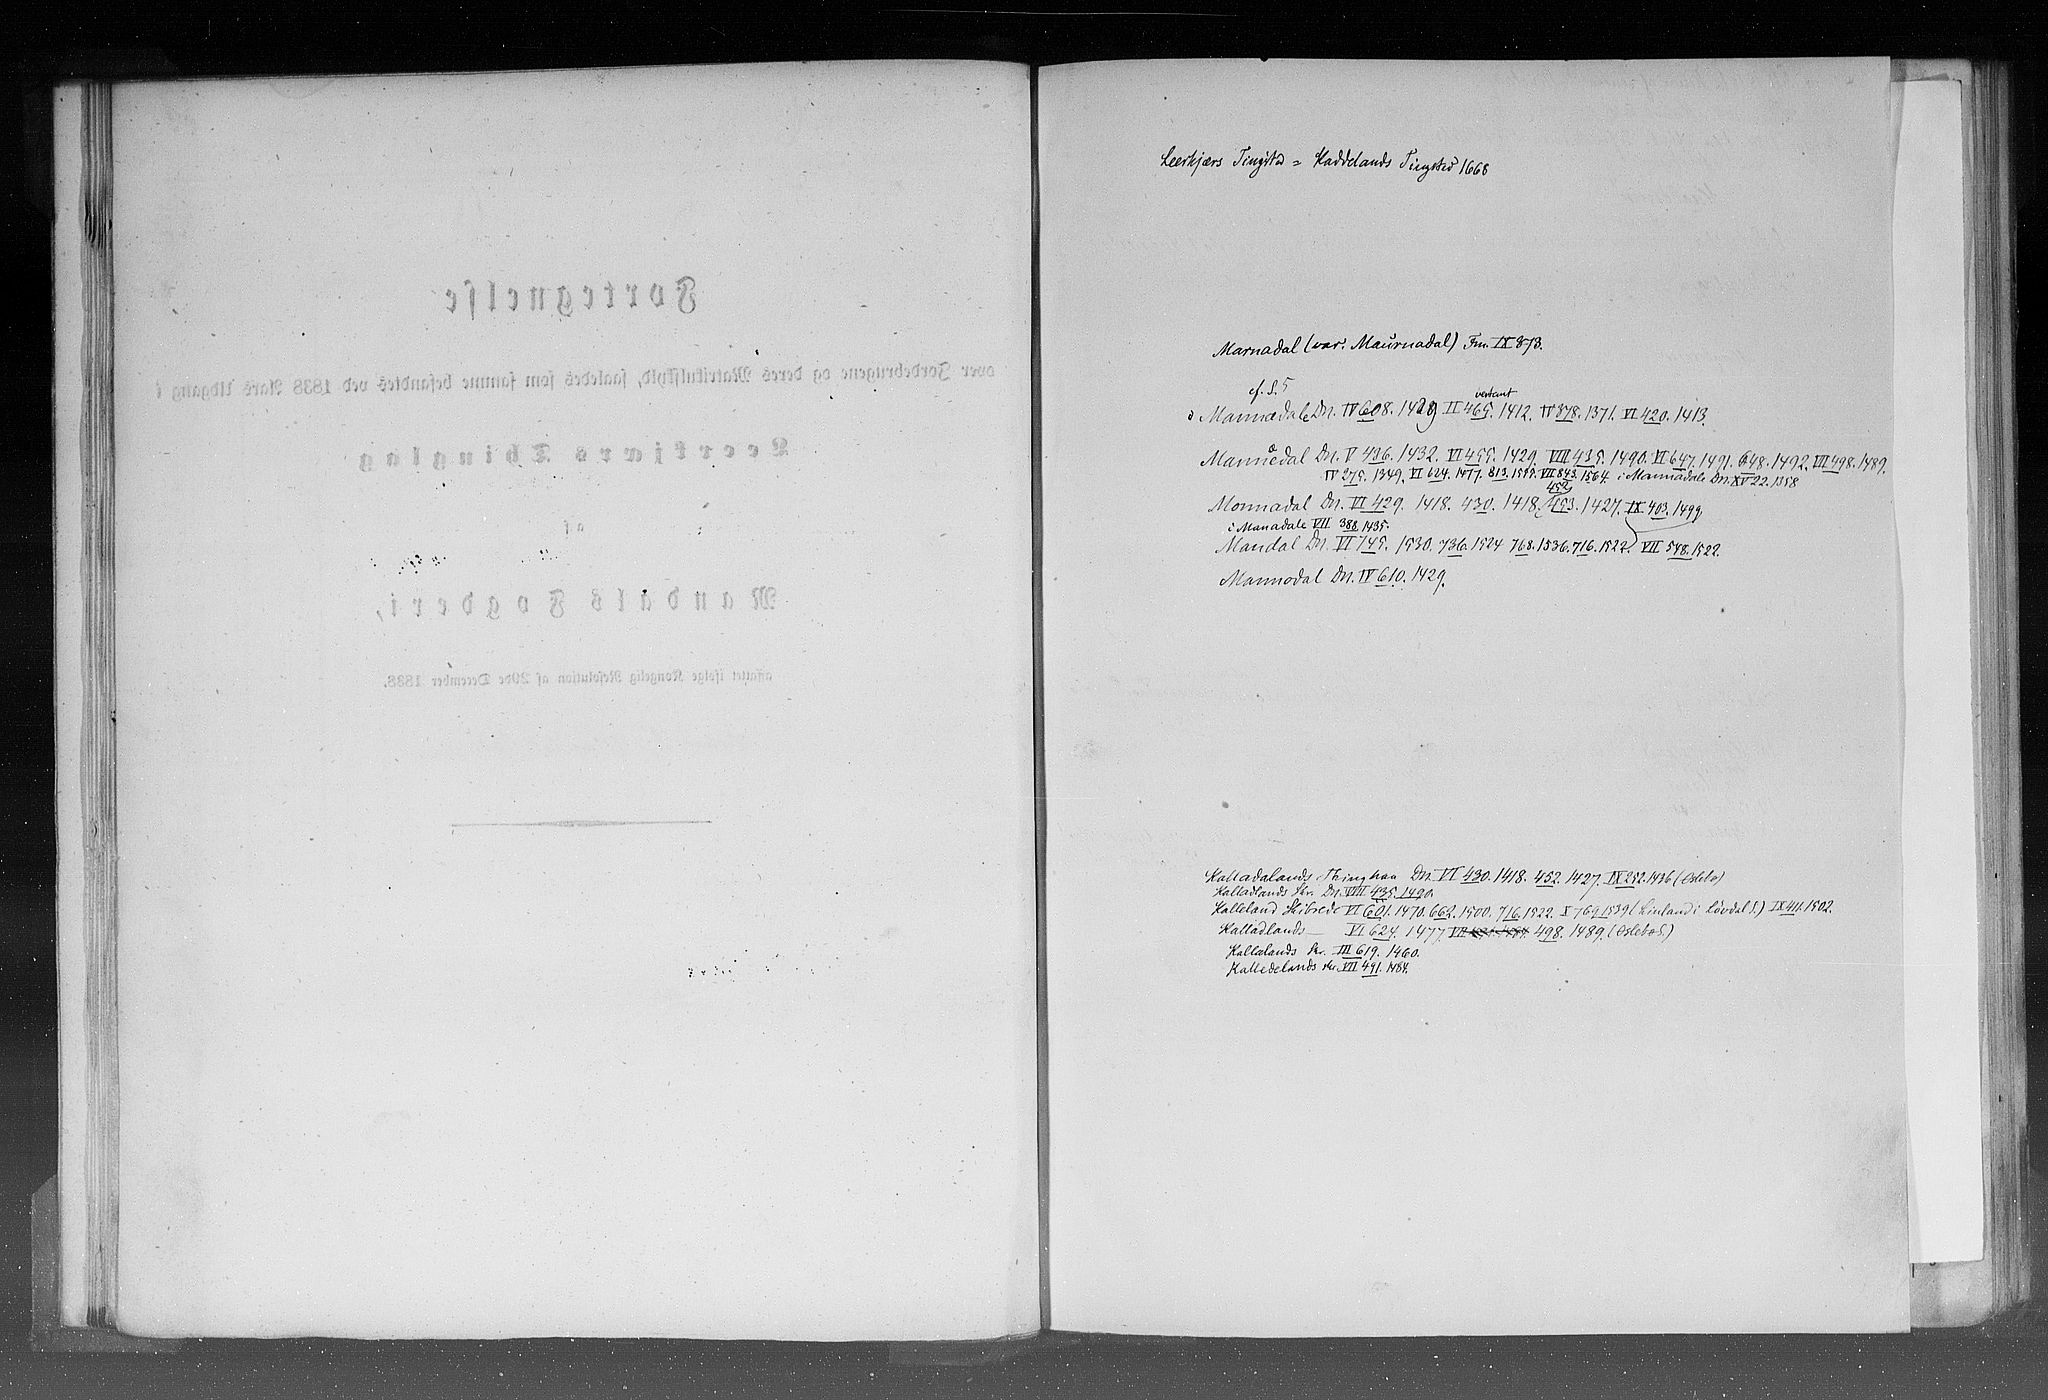 Fortegnelse
over Jordebrugene og deres Matrikulskyld, saaledes som samme befandtes ved 1838 Aars Udgang i
Leerkjærs Thinglag
af
Mandals Fogderi,
affattet ifølge Kongelig Resolution af 29de December 1838.
Leerkjærs Tingsted = Kaddelands Tingsted 1668
Marnadal (var. Maurnadal) Fm. IX 873.
cf. S. 5
vestant
Mannædale Dn. IV 608. 1429 II 465. 1412. IV 378. 1371. VI 420. 1413.
Mannedal Dn. V 436. 1432. VI 455. 1429. VIII 435. 1490. VI 647. 1491. 648. 1492. VII 498. 1489.
IV 275. 1349. VI 624. 1477. 813. 1599. VII 843. 1564. i Mannadale Dn. XV 22. 1358
452
Monnadal Dn. VI 429. 1418. 430. 1418. 453. 1427. IX 403. 1499.
i Manadale VII 388. 1435.
Mandal Dn. VI 745. 1530. 736. 1524 768. 1536. 716. 1522. VII 548. 1522.
Mannodal Dn. IV 610. 1429.
Kalladalands Thinghaa Dn. VI 430. 1418. 452. 1427. IX 252. 1436 (Oslebo)
Kalladlands Skr. Dn. VIII 435. 1490.
Kalleland Skibrede VI 601. 1470. 662. 1500. 716. 1522. X 769. 1539 (Linland i Løvdal S.) IX 411. 1502.
Kalladlands — VI 624. 1477 498. 1489. (Oslebo S.)
Kallalands Skr. III 619. 1460.
Kalledelands skr. VII 491. 1484.